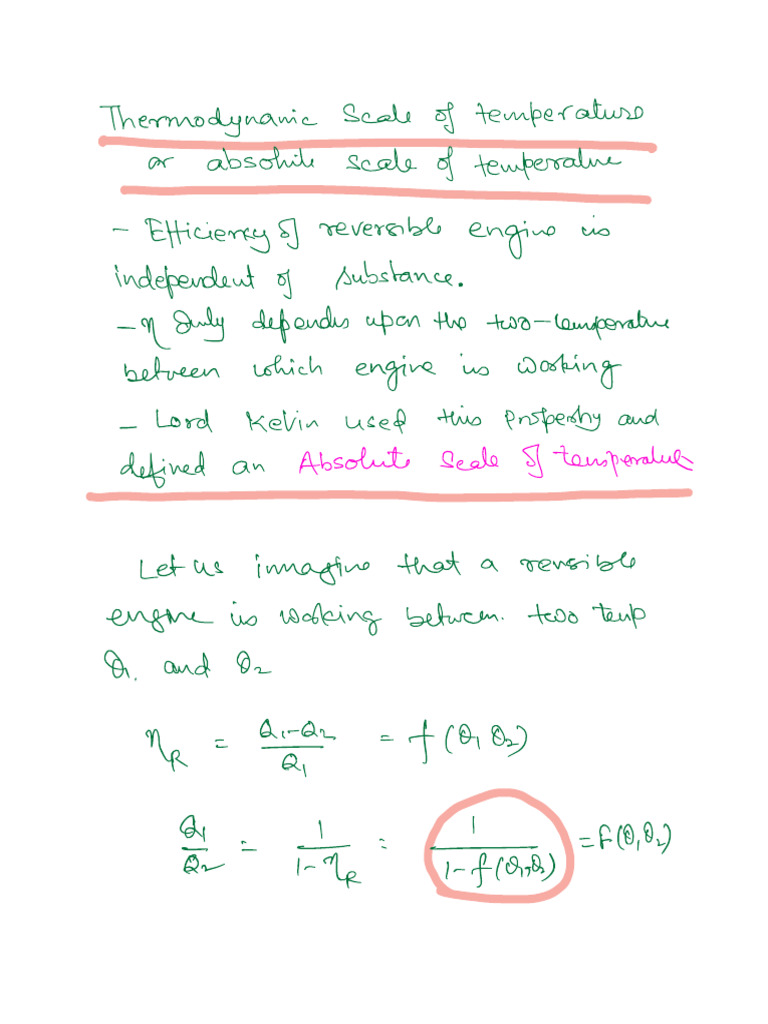 Thermodynamic Scale of temperature
or absolute scale of temperature
- Efficiency of reversible engine is
independent of substance.
- η Only depends upon the two-temperature
between which engine is working
- Lord Kelvin used this property and
defined an Absolute Scale of temperature
Let us immagine that a reversible
engine is working between two temp
θ1. and θ2
ηR = (Q1-Q2)/Q1 = f(θ1 θ2)
Q1/Q2 = 1/(1-ηR) = 1/(1-f(θ1,θ2)) = F(θ1θ2)